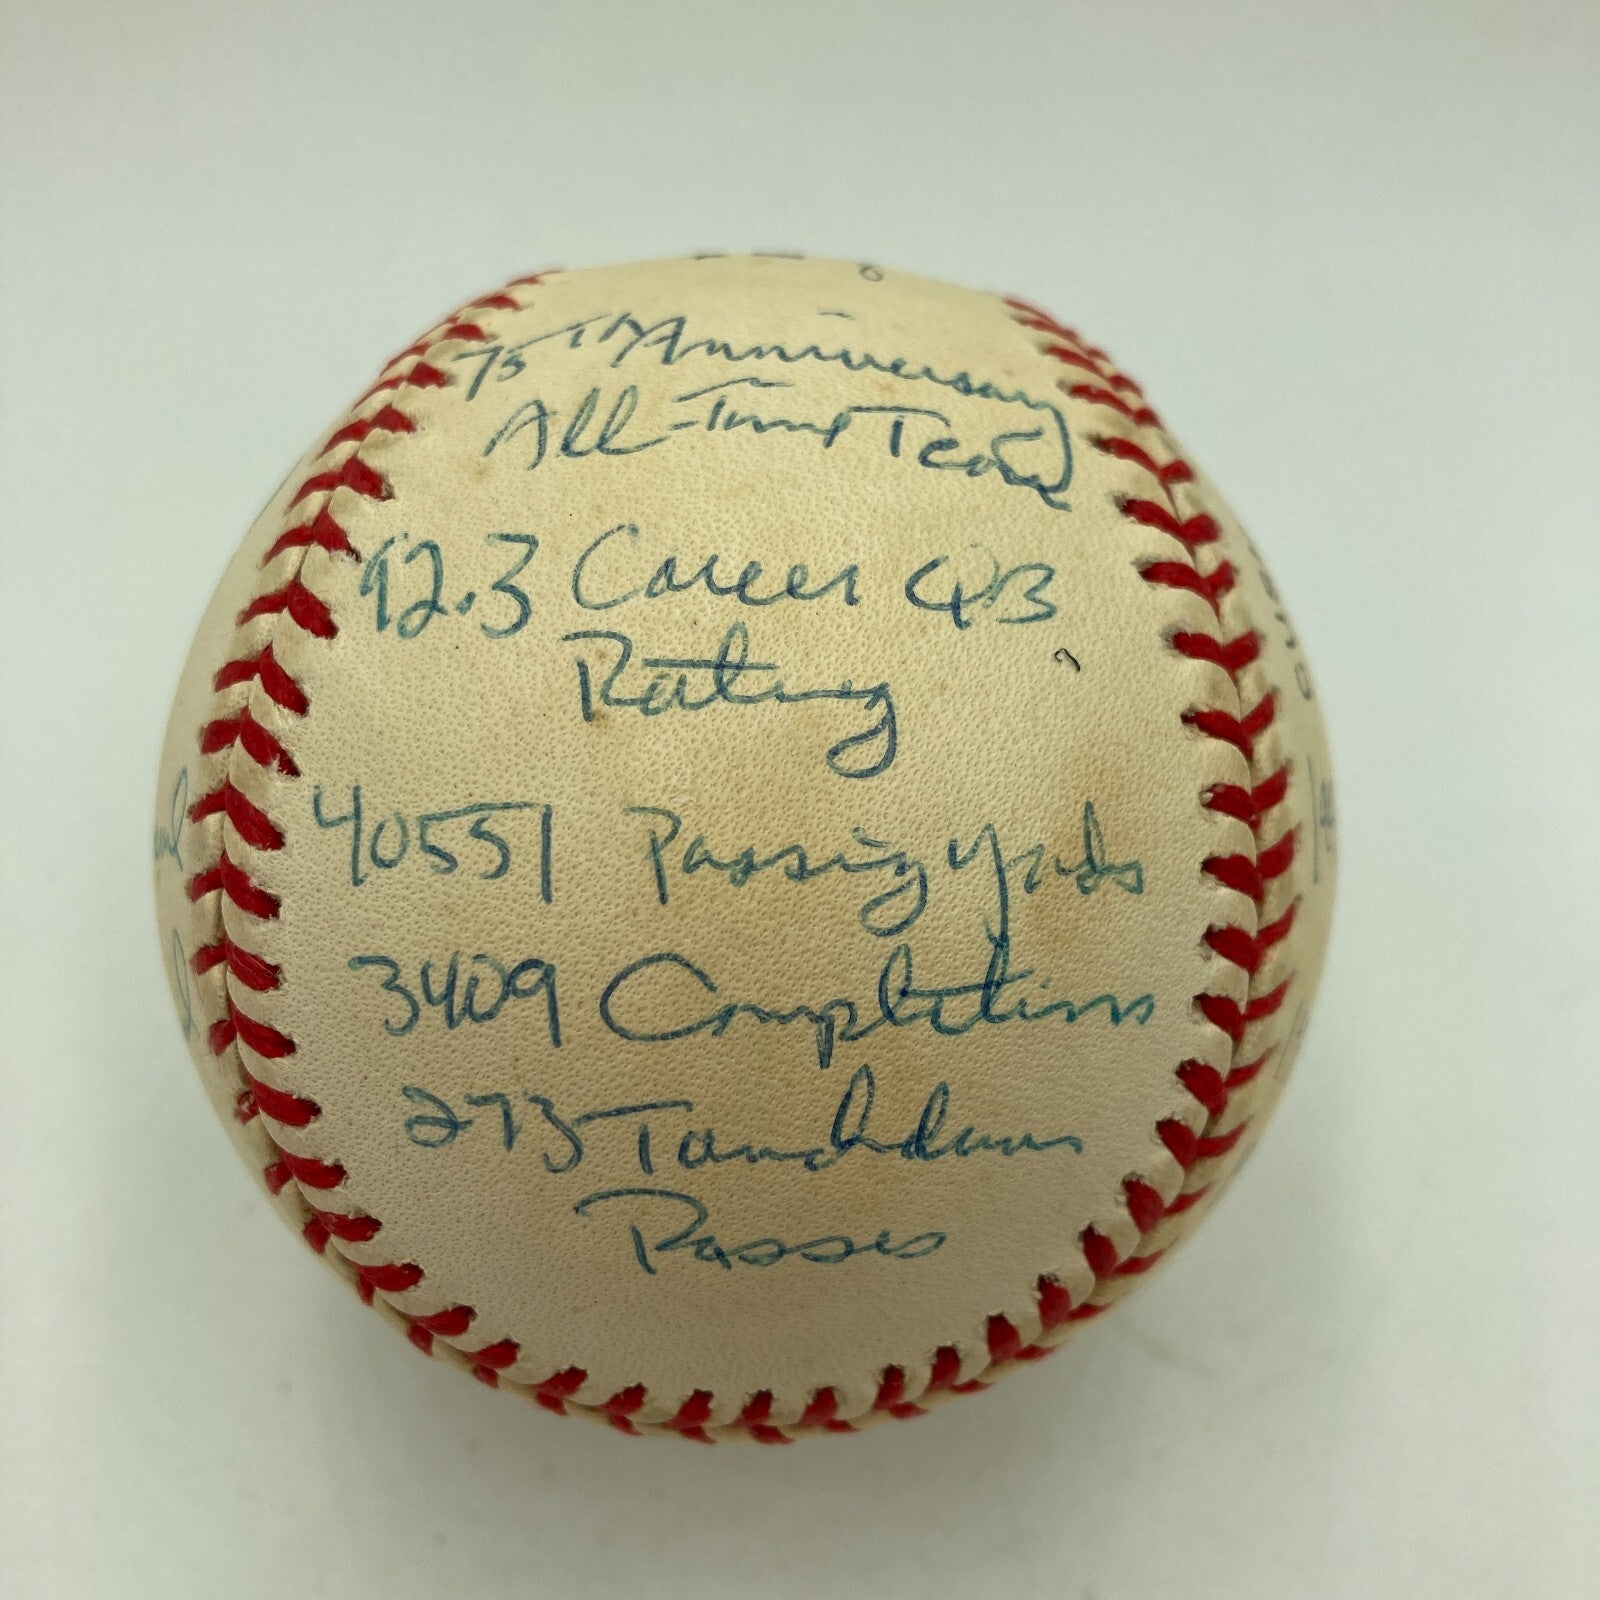 75TH Anniversary
All-Time Team
92.3 Career QB
Rating
40551 Passing Yards
3409 Completions
273 Touchdowns
Passes